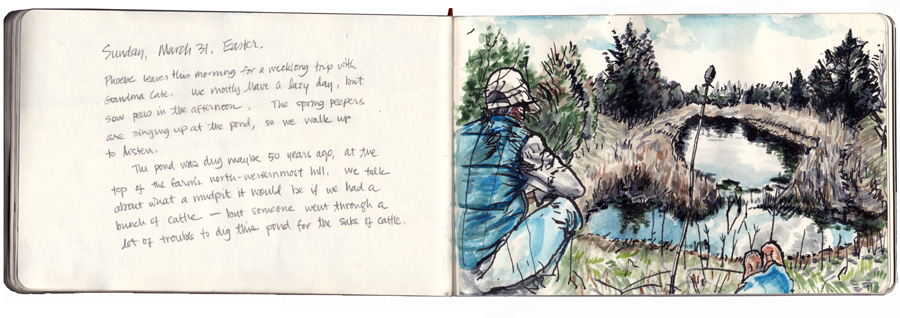 Sunday, March 31. Easter.
Phoebe leaves this morning for a weeklong trip with
Grandma Cate. We mostly have a lazy day, but
sow peas in the afternoon. The spring peepers
are singing up at the pond, so we walk up
to listen.
The pond was dug maybe 50 years ago, at the
top of the farm's north-westernmost hill. We talk
about what a mudpit it would be if we had a
bunch of cattle — but someone went through a
lot of trouble to dig this pond for the sake of cattle.